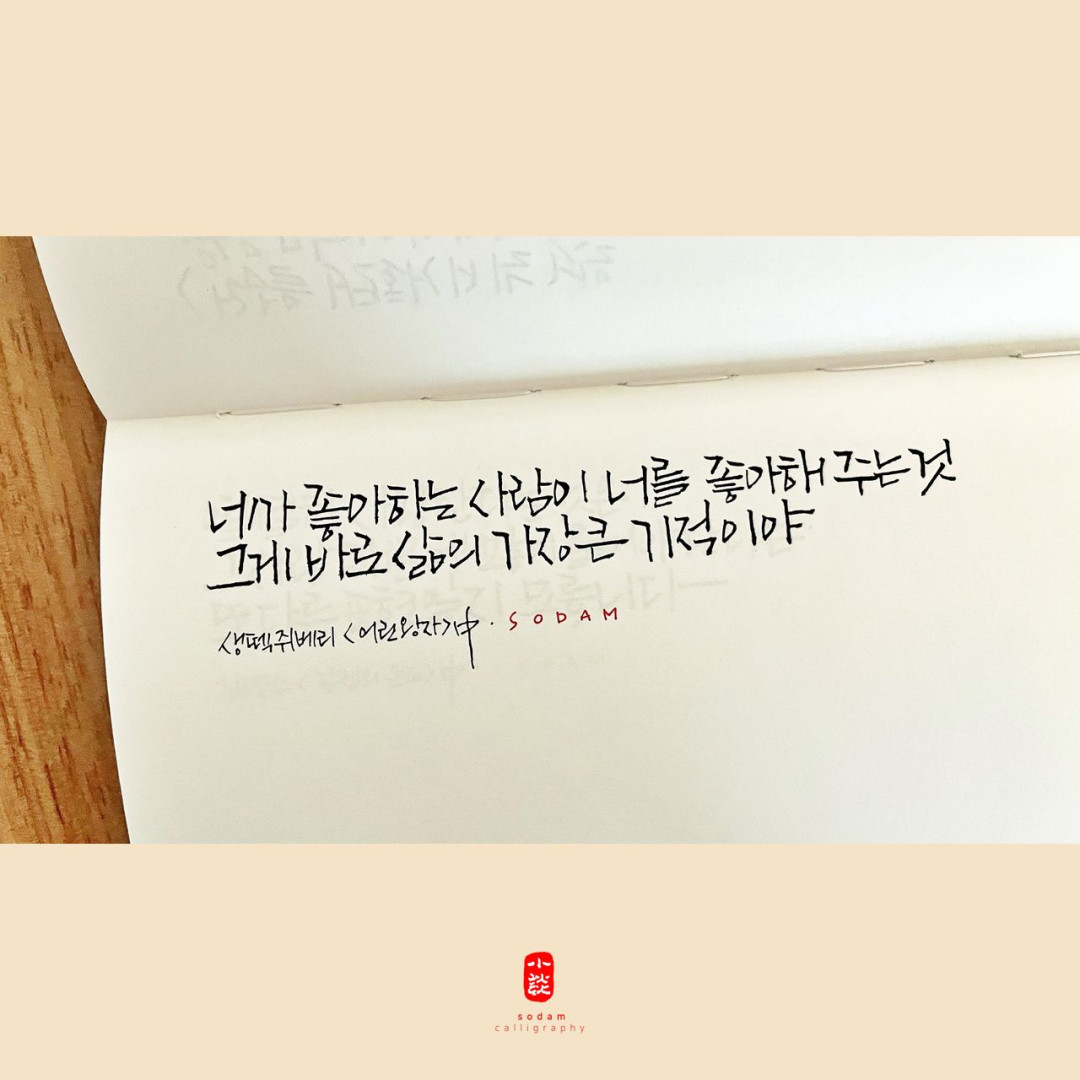 네가 좋아하는 사람이 너를 좋아해 주는것
그게 바로 삶의 가장 큰 기적이야
생떽쥐베리 <어린왕자> 中 . SODAM
小談
sodam
calligraphy